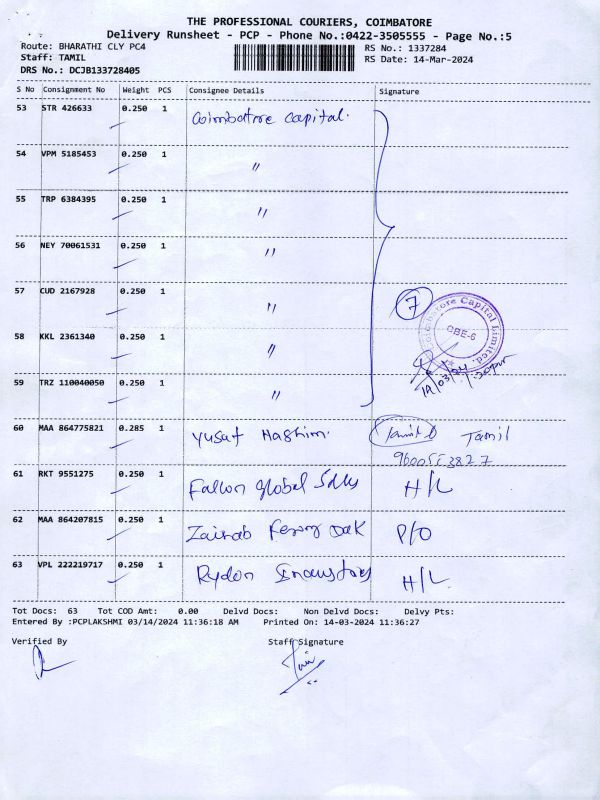 THE PROFESSIONAL COURIERS, COIMBATORE
Delivery Runsheet - PCP - Phone No.:0422-3505555 - Page No.:5
Route: BHARATHI CLY PC4
RS No.: 1337284
Staff: TAMIL
RS Date: 14-Mar-2024
DRS No.: DCJB133728405
S No Consignment No Weight PCS Consignee Details Signature
53 STR 426633 0.250 1 Coimbatore Capital.
54 VPM 5185453 0.250 1 〃
55 TRP 6384395 0.250 1 〃
56 NEY 70061531 0.250 1 〃
57 CUD 2167928 0.250 1 〃
7
Coimbatore Capital Limited.
CBE-6
58 KKL 2361340 0.250 1 〃
59 TRZ 110040050 0.250 1 〃
60 MAA 864775821 0.285 1 Yusuf Hashim. Tamil
61 RKT 9551275 0.250 1 Falcon Global H/L
62 MAA 864207815 0.250 1 Zainab P/O
63 VPL 222219717 0.250 1 Rydon H/L
Tot Docs: 63 Tot COD Amt: 0.00 Delvd Docs: Non Delvd Docs: Delvy Pts:
Entered By :PCPLAKSHMI 03/14/2024 11:36:18 AM Printed On: 14-03-2024 11:36:27
Verified By Staff Signature